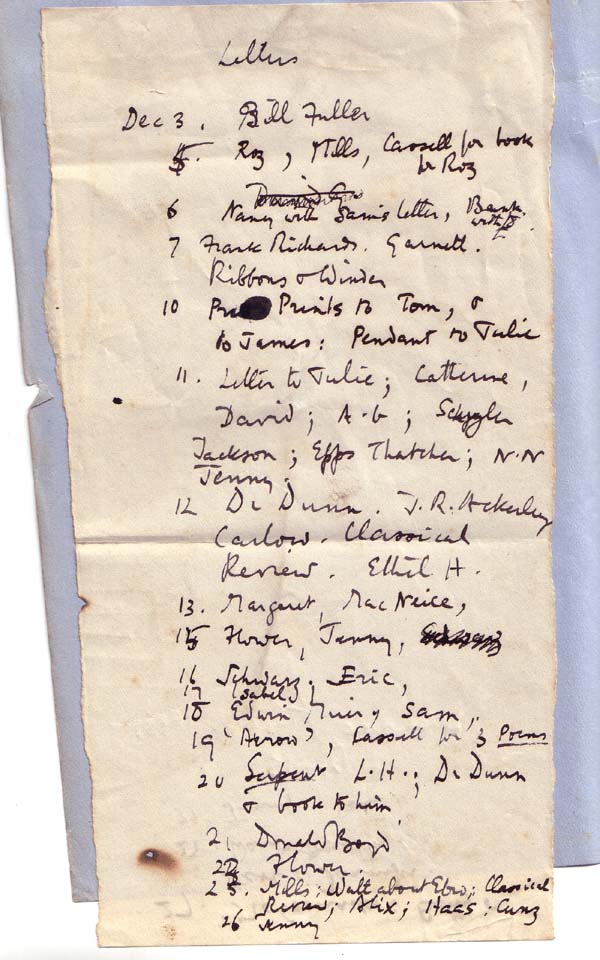 Letters
Dec 3. Bill Fuller
5. Roz, Mills, Cassell for book
for Roz
6 Nancy with Sam's letter, Bank
with
7 Frank Richards. Garnett.
Ribbons & Winder
10 Prints to Tom, &
to James: Pendant to Julie
11. Letter to Julie; Catherine,
David; A.G; Schuyler
Jackson; Epps Thatcher; N.N
Jenny.
12 Dr Dunn. J.R. Ackerley
Carlow. Classical
Review. Ethel H.
13. Margaret, MacNeice,
15 Flower, Jenny,
16 Schwarz. Eric,
17 Isabel,
18 Edwin Muir, Sam,
19 'Arrow', Cassell for 3 Poems
20 Serpent L.H.; Dr Dunn
& book to him
21 Donald Boyd
22 Flower.
25. Mills; Watt about Ebro; Classical
Review; Alix; Haas; Cung
26 Jenny